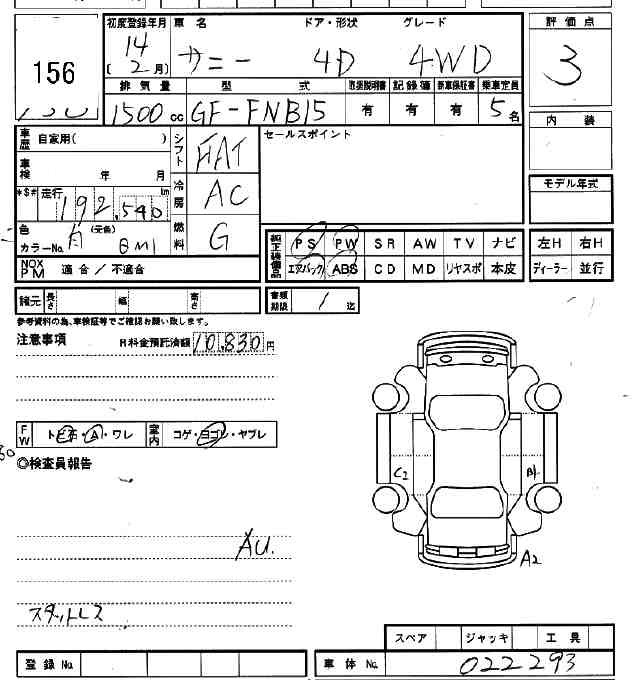 156
初度登録年月 車名 ドア・形状 グレード 評価点
14 サニー 4D 4WD 3
(2月)
排気量 型式 取扱説明書 記録簿 新車保証書 乗車定員
1500cc GF-FNB15 有 有 有 5名
内装
車歴 自家用( )
シフト FAT
セールスポイント
車検 年 月
冷房 AC
モデル年式
*$# 走行 km
192,540
色 (元色)
カラーNo. BM1
燃料 G
純正装備品 PS PW SR AW TV ナビ
エアバック ABS CD MD リヤスポ 本皮
左H 右H
ディーラー 並行
NOX PM 適合/不適合
諸元 長さ 幅 高さ
書類期限 / 迄
参考資料の為、車検証等でご確認お願い致します。
注意事項 R料金預託済額 10,830円
FW トビ石・A・ワレ 室内 コゲ・ヨゴレ・ヤブレ
◎検査員報告
C2
A1
A2
AU.
スタットレス
スペア ジャッキ 工具
登録No. 車体No. 022293